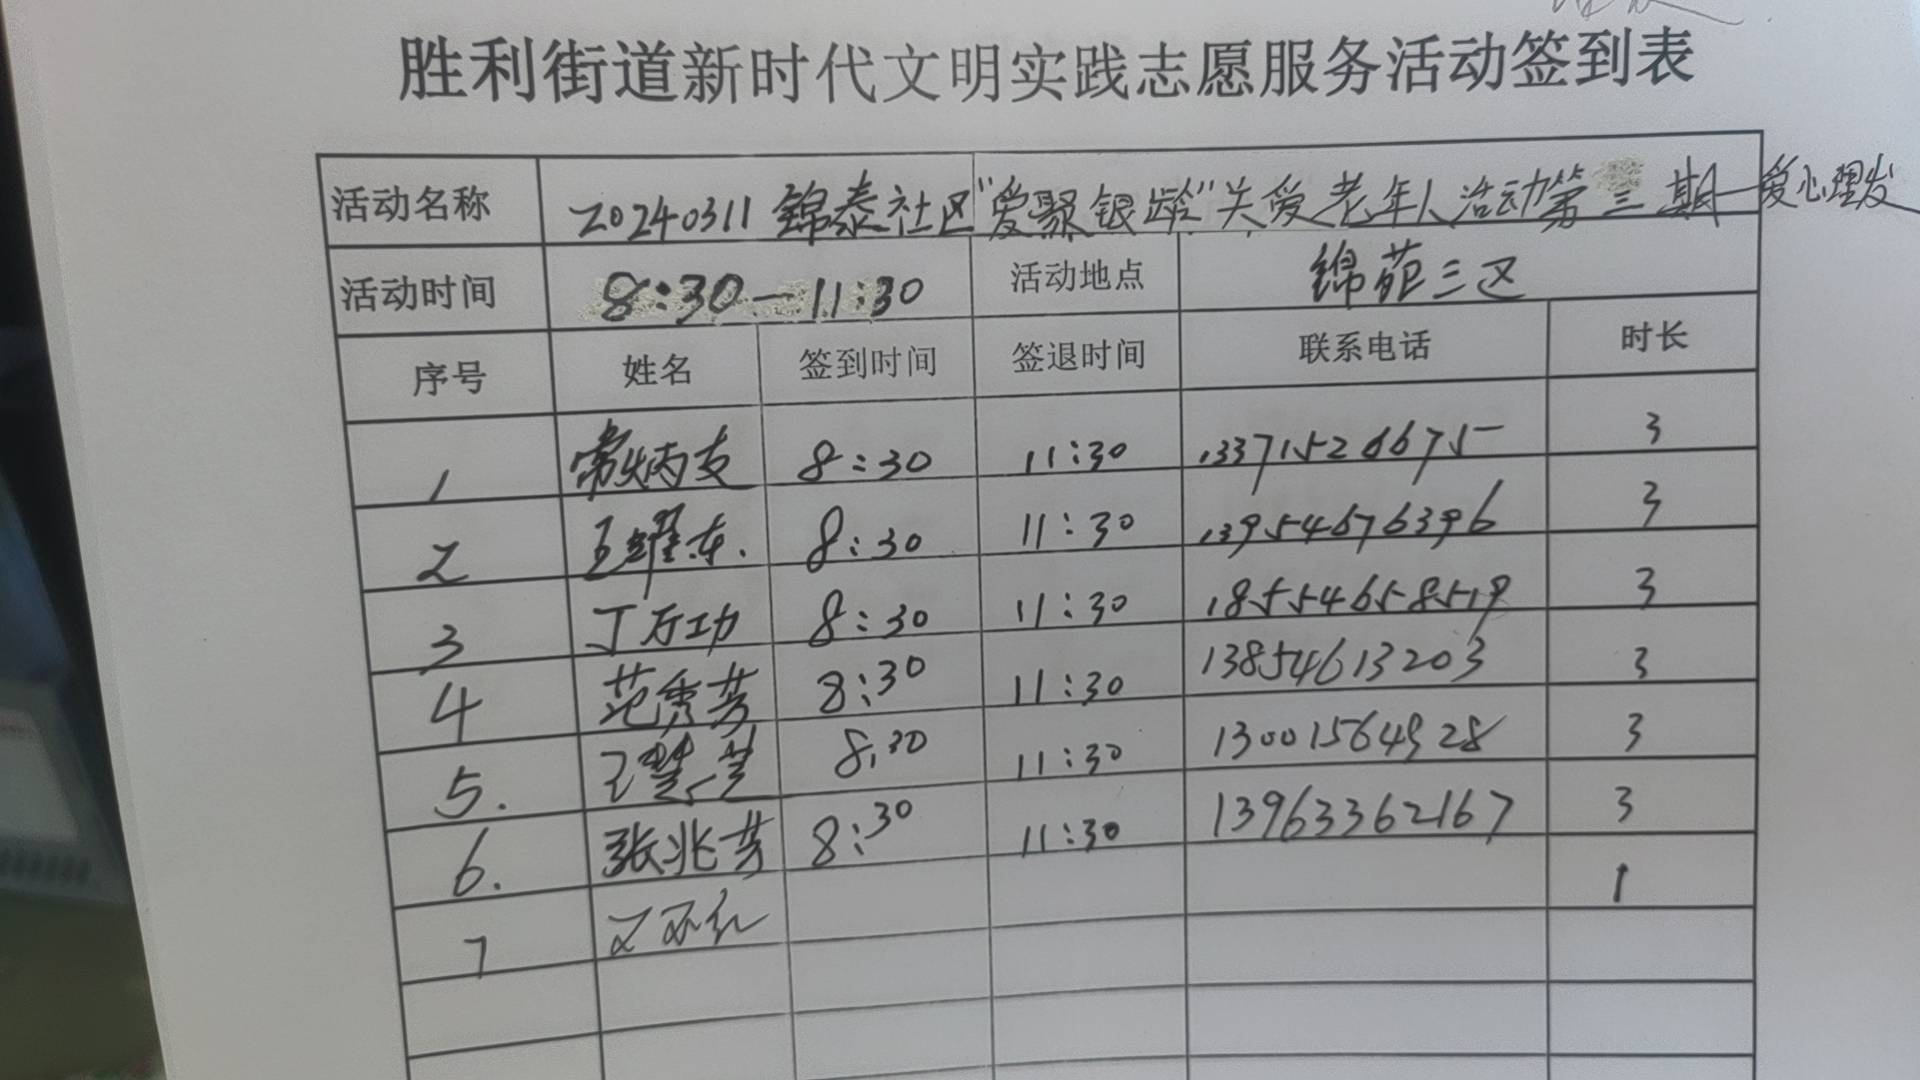 胜利街道新时代文明实践志愿服务活动签到表
活动名称 20240311 锦泰社区"爱聚银龄"关爱老年人活动第三期—爱心理发
活动时间 8:30—11:30 活动地点 锦苑三区
序号 姓名 签到时间 签退时间 联系电话 时长
1 常炳支 8:30 11:30 13371526675 3
2 王耀东. 8:30 11:30 13954676396 3
3 丁万功 8:30 11:30 18554658519 3
4 范秀芳 8:30 11:30 13854613203 3
5. 王慧芝 8:30 11:30 13001564928 3
6. 张兆芳 8:30 11:30 13963362167 3
7 1